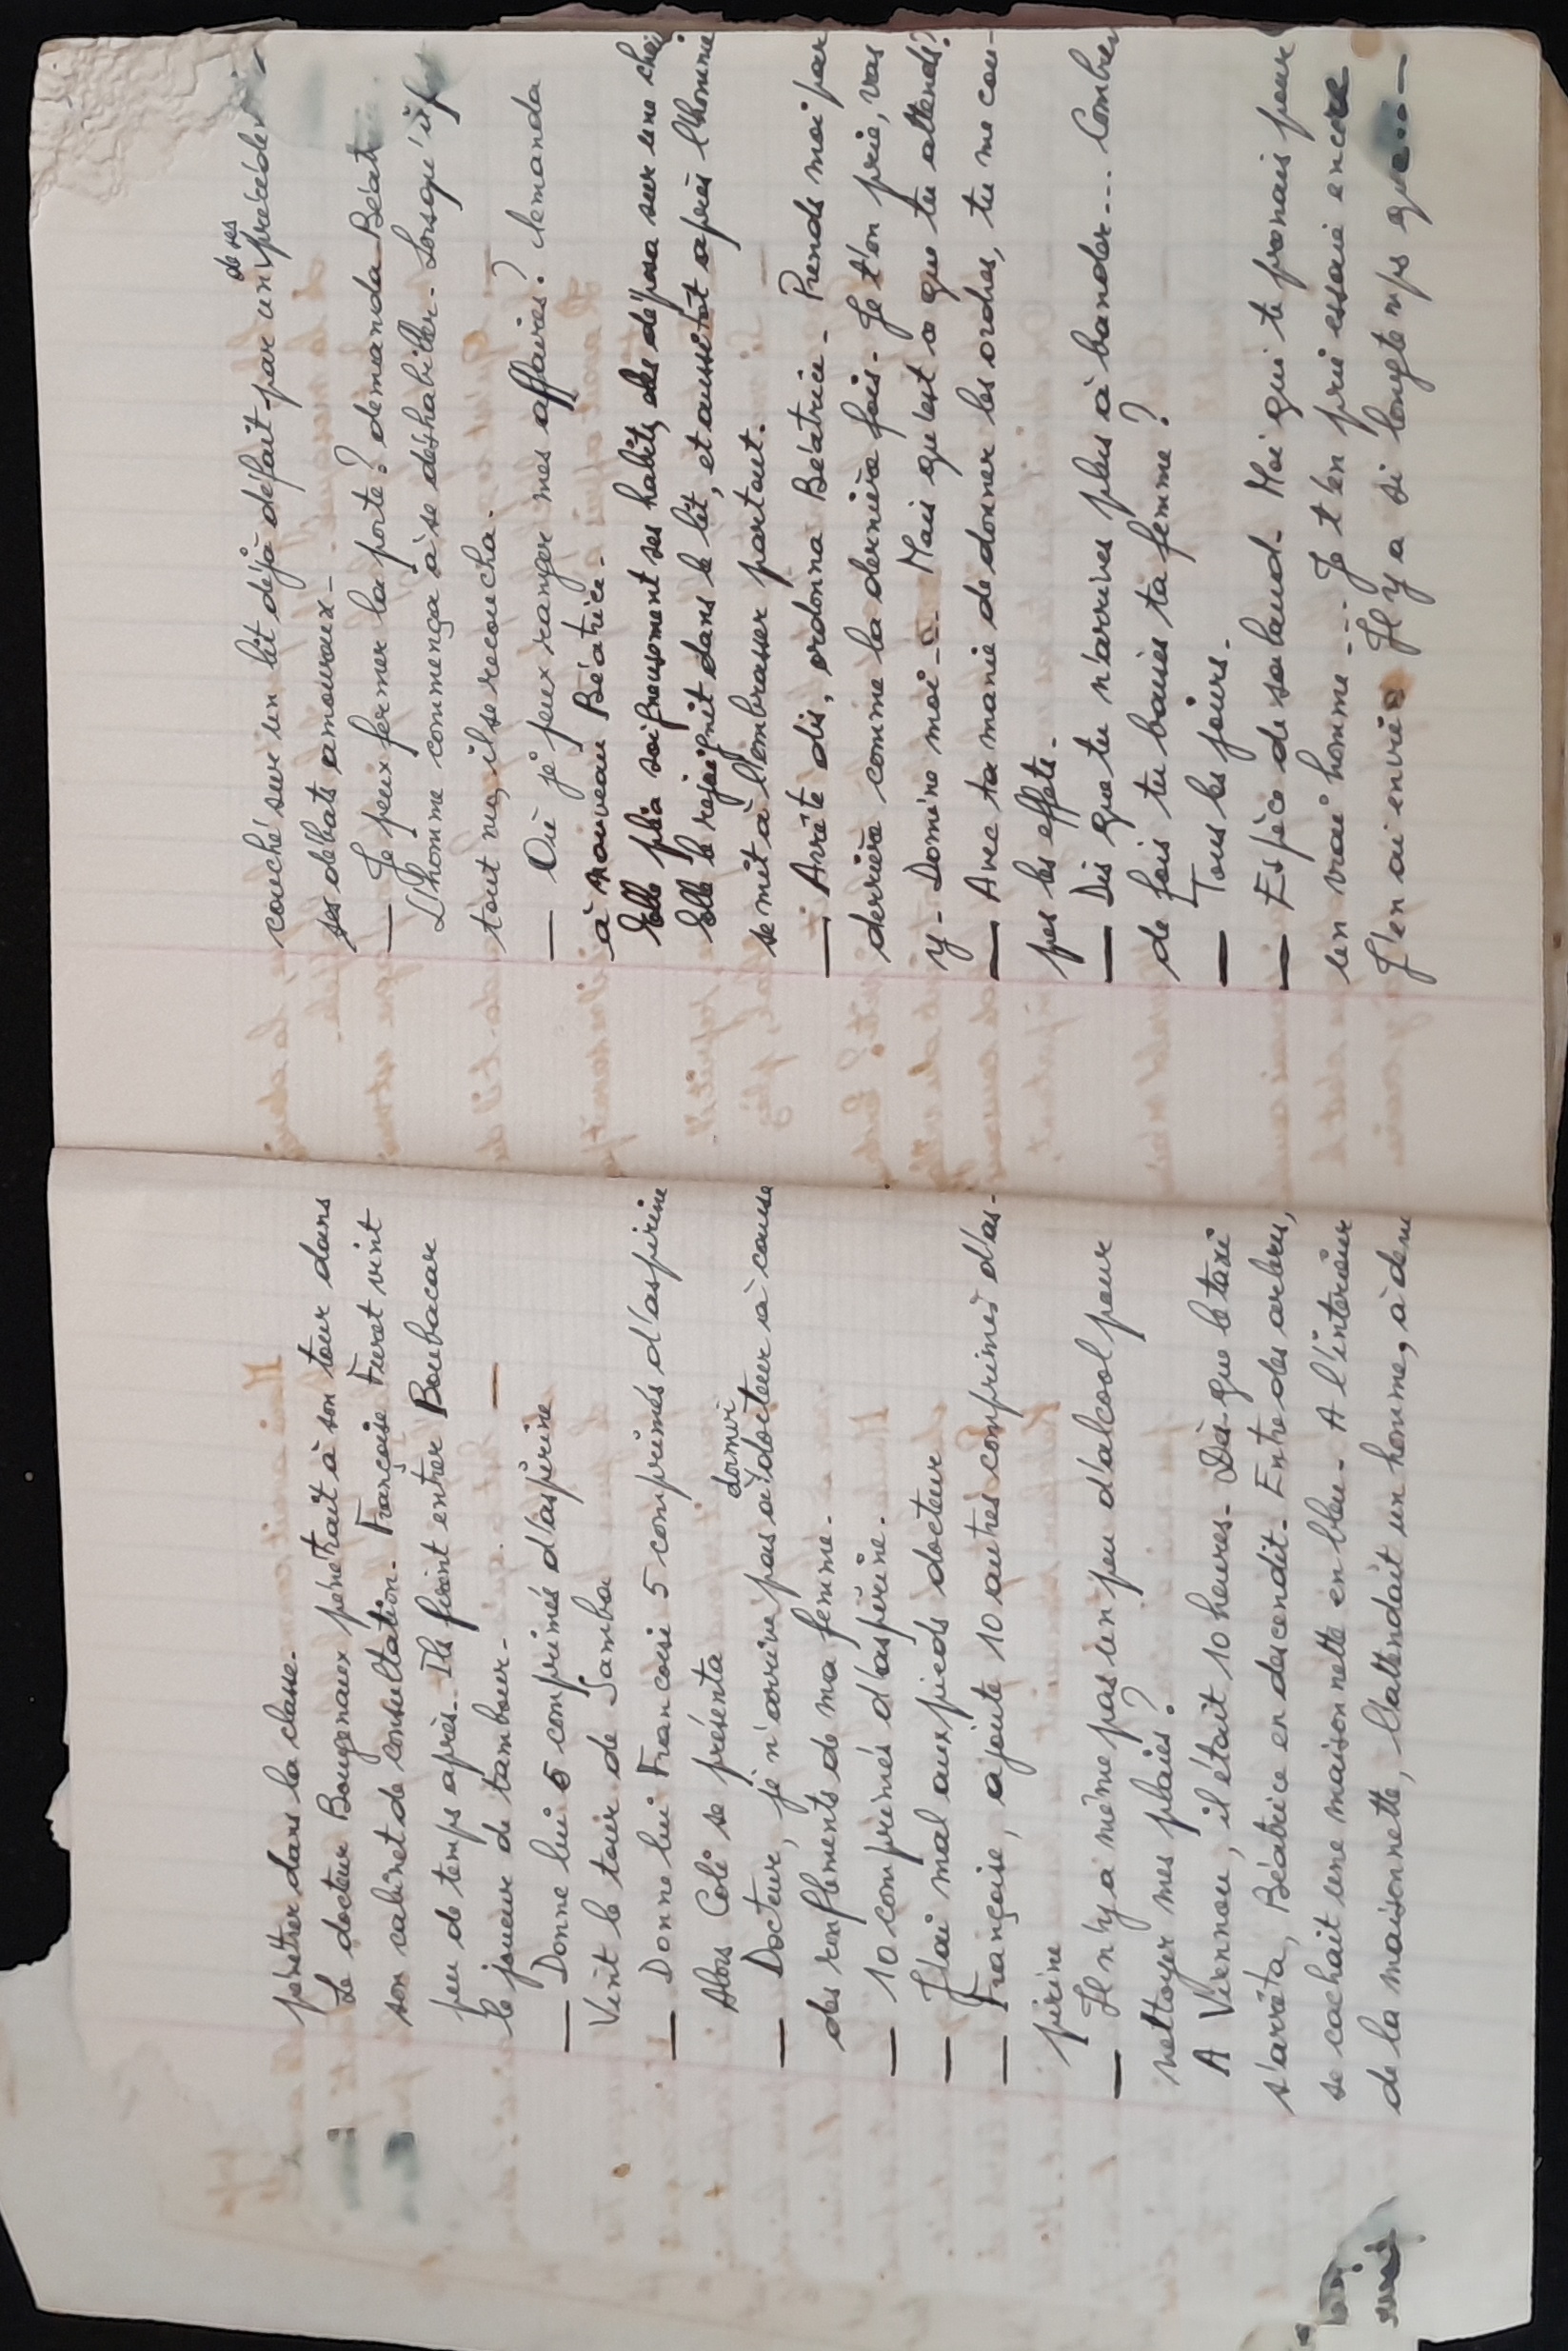 pénétrer dans la classe.
Le docteur Bougenaux pénétrait à son tour dans
son cabinet de consultation. Françoise Furet vint
peu de temps après. Ils firent entrer Boubacar
le joueur de tambour.
— Donne lui 5 comprimés d'aspirine
Vint le tour de Samba
— Donne lui Francoise 5 comprimés d'aspirine
Alors Coli se présenta
— Docteur, je n'arrive pas à dormir docteur à cause
des ronflements de ma femme.
— 10 comprimés d'aspirine.
— J'ai mal aux pieds docteur
— Françoise, ajoute 10 autres comprimés d'as-
pirine
— Il n'y a même pas un peu d'alcool pour
nettoyer mes plaies ?
A Viennou, il était 10 heures. Dès que le taxi
s'arrêta, Béatrice en descendit. Entre des arbres,
se cachait une maisonnette en bleu. A l'intérieur
de la maisonnette, l'attendait un homme, à demi
couché sur un lit déjà défait par un de ses précédents
ses débats amoureux.
— Je peux fermer la porte ? demanda Béat
L'homme commença à se déshabiller. Lorsqu'il fut
tout nu, il se recoucha.
— Où je peux ranger mes affaires ? demanda
à nouveau Béatrice.
Elle plia soigneusement ses habits, les déposa sur une chai
Elle le rejoignit dans le lit, et aussitôt après l'homme
se mit à l'embrasser partout.
— Arrête dis, ordonna Béatrice. Prends moi par
derrière comme la dernière fois. Je t'en prie, vas
y. Domine moi... Mais qu'est ce que tu attends ?
— Avec ta manie de donner les ordres, tu me cou-
pes les effets.
— Dis que tu n'arrives plus à bander... Combien
de fois tu baises ta femme ?
— Tous les jours.
— Espèce de salaud. Moi qui te prenais pour
un vrai homme... Je t'en prie essaie encore
J'en ai envie. Il y a si longtemps que...